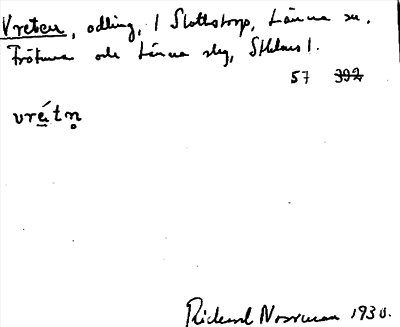 Vreten, odling, 1 Slottstorp, Länna sn,
Frötuna och Länna slg, Sthlms l.
57 392
vrét̥n̥
Rickard Norrman 1930.